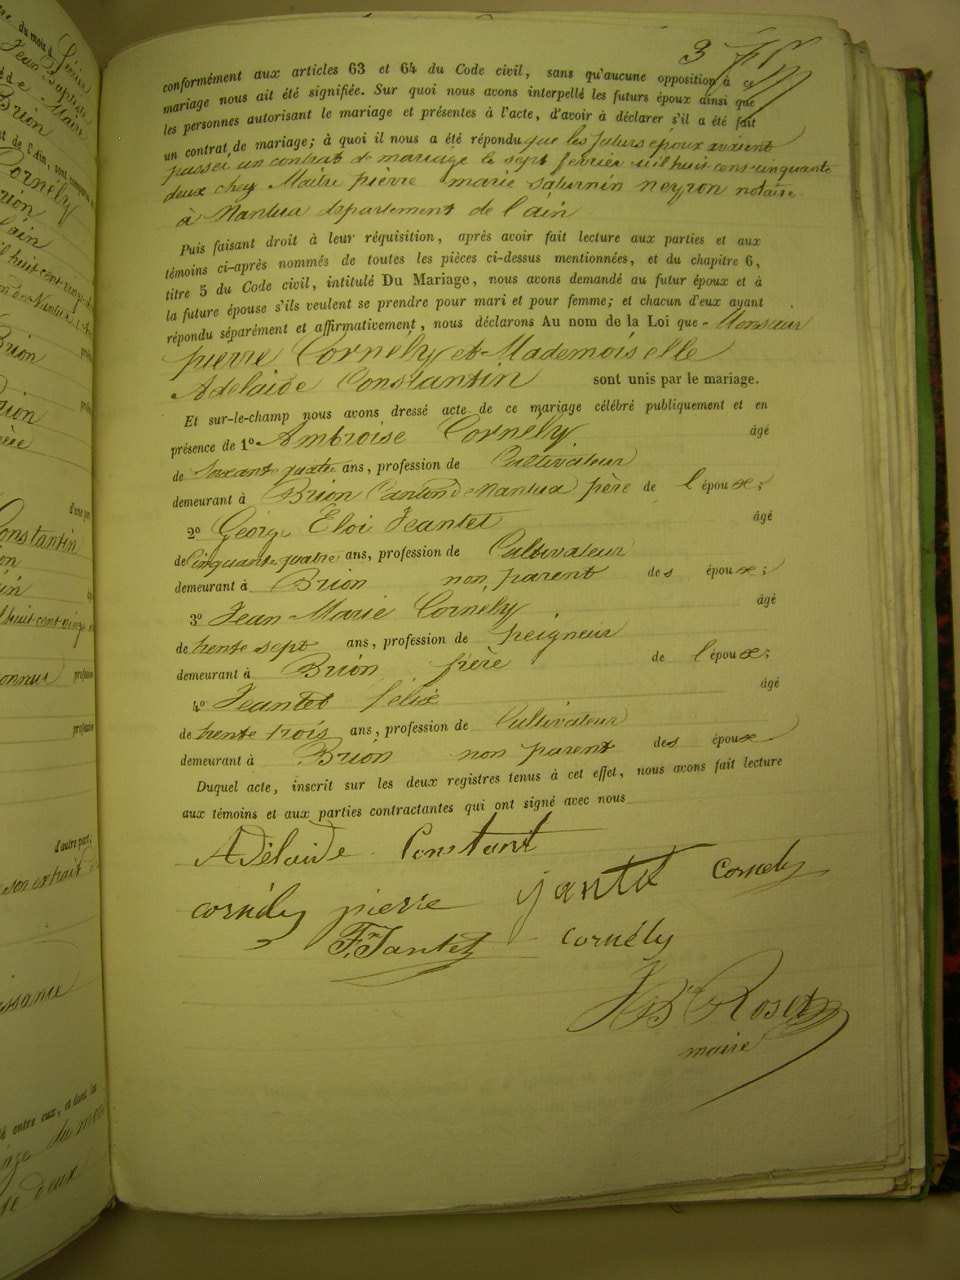 3
conformément aux articles 63 et 64 du Code civil, sans qu'aucune opposition à ce
mariage nous ait été signifiée. Sur quoi nous avons interpellé les futurs époux ainsi que
les personnes autorisant le mariage et présentes à l'acte, d'avoir à déclarer s'il a été fait
un contrat de mariage; à quoi il nous a été répondu que les futurs époux avaient
passer un contrat de mariage le sept fevrier mil huit cens cinquante
deux chez Maitre pierre marie saturnin neyron notaire
à Nantua departement de l'ain
Puis faisant droit à leur réquisition, après avoir fait lecture aux parties et aux
témoins ci-après nommés de toutes les pièces ci-dessus mentionnées, et du chapitre 6,
titre 5 du Code civil, intitulé Du Mariage, nous avons demandé au futur époux et à
la future épouse s'ils veulent se prendre pour mari et pour femme; et chacun d'eux ayant
répondu séparément et affirmativement, nous déclarons Au nom de la Loi que Monsieur
pierre Cornély et Mademoiselle
Adelaide Constantin sont unis par le mariage.
Et sur-le-champ nous avons dressé acte de ce mariage célébré publiquement et en
présence de 1º Ambroise Cornély âgé
de soixante quatre ans, profession de Cultivateur
demeurant à Brion Canton de Nantua père de l'époux;
2º George Éloi Jeantet âgé
de cinquante quatre ans, profession de Cultivateur
demeurant à Brion non parent des époux;
3º Jean Marie Cornély âgé
de trente sept ans, profession de peigneur
demeurant à Brion frère de l'époux;
4º Jeantet félix âgé
de trente trois ans, profession de Cultivateur
demeurant à Brion non parent des époux
Duquel acte, inscrit sur les deux registres tenus à cet effet, nous avons fait lecture
aux témoins et aux parties contractantes qui ont signé avec nous
Adélaide Constant
cornély pierre jantet cornely
F. Jantet cornély
maire